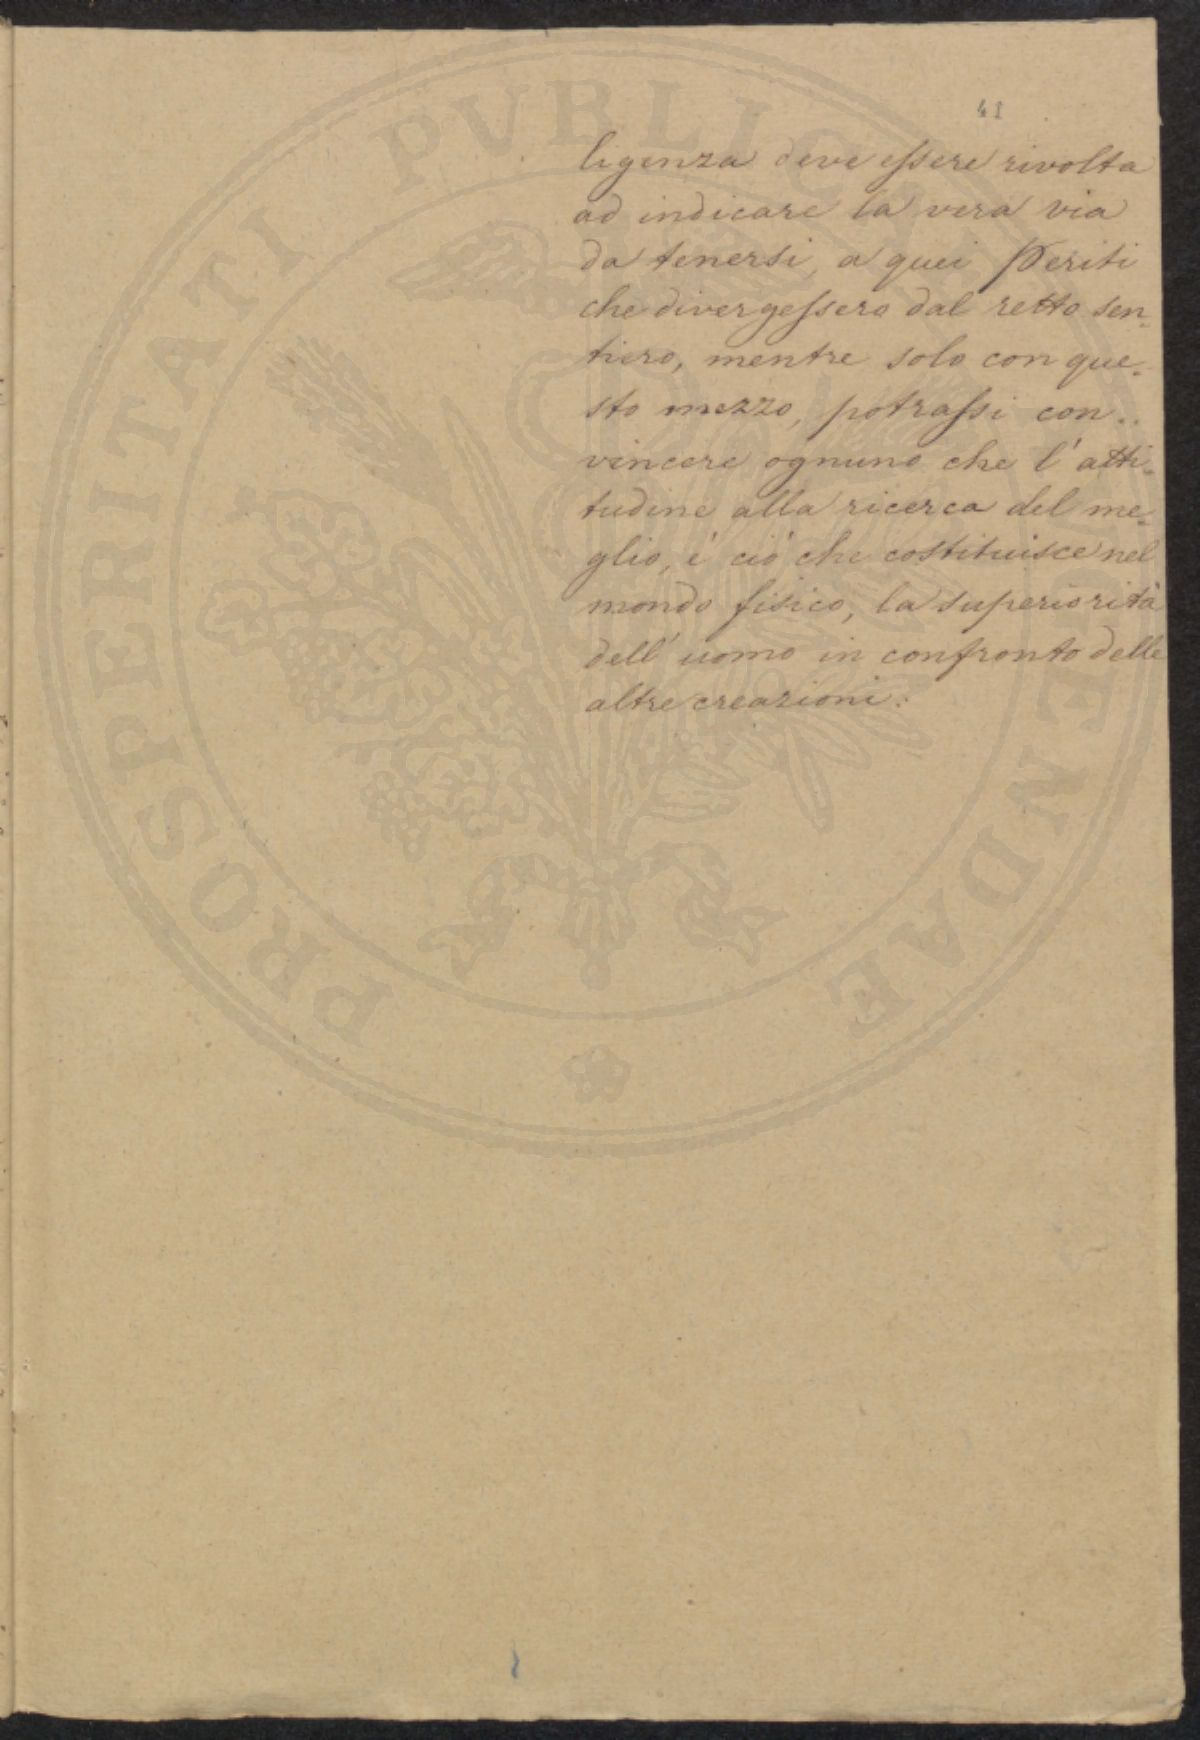 41
ligenza deve essere rivolta
ad indicare la vera via
da tenersi, a quei Periti
che divergessero dal retto sen-
tiero, mentre solo con que-
sto mezzo, potrassi con..
vincere ognuno che l'atti-
tudine alla ricerca del me-
glio, è ciò che costituisce nel
mondo fisico, la superiorità
dell'uomo in confronto delle
altre creazioni.
PROSPERITATI PVBLICAE AVGENDAE